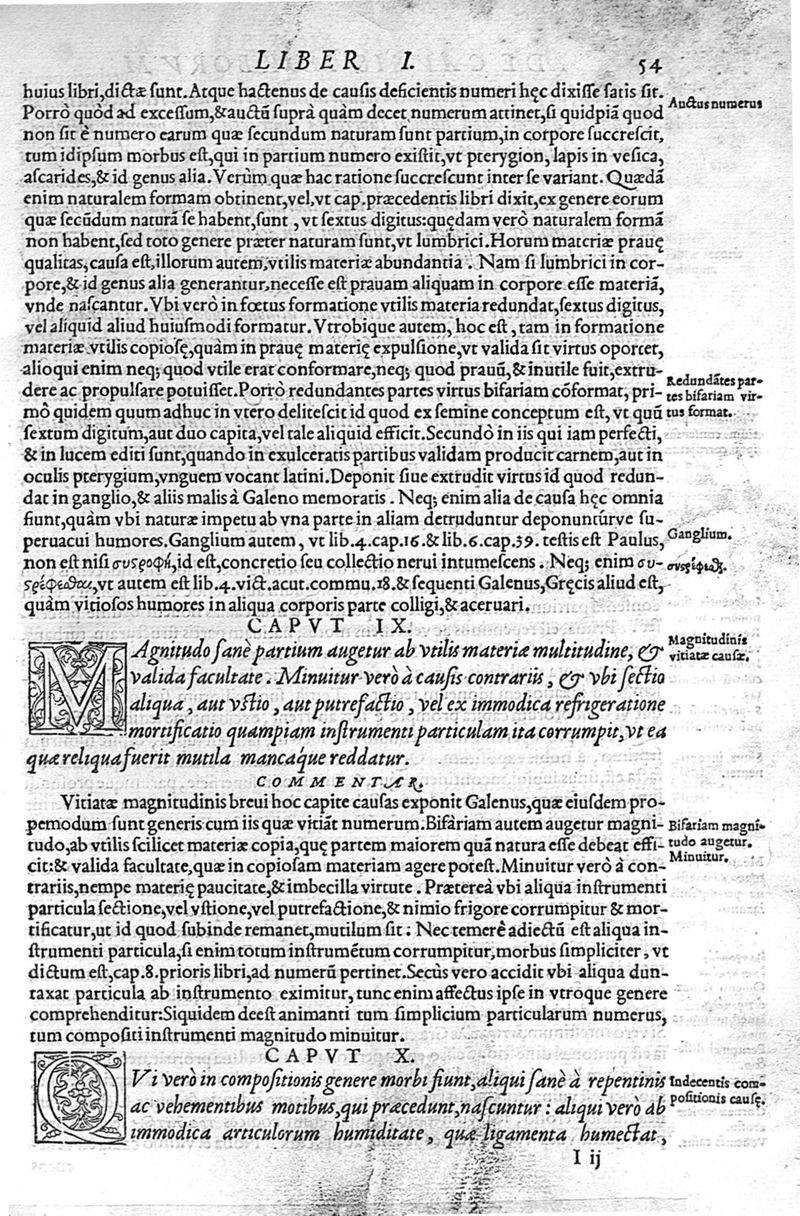 LIBER I.
54
huius libri,dictæ sunt.Atque hactenus de causis deficientis numeri hęc dixisse satis sit.
Auctus numerus
Porrò quòd ad excessum,&auctũ suprà quàm decet numerum attinet,si quidpiã quod
non sit è numero earum quæ secundum naturam sunt partium,in corpore succrescit,
tum idipsum morbus est,qui in partium numero existit,vt pterygion, lapis in vesica,
ascarides,& id genus alia.Verùm quæ hac ratione succrescunt inter se variant. Quædã
enim naturalem formam obtinent,vel,vt cap.præcedentis libri dixit,ex genere eorum
quæ secũdum naturã se habent,sunt , vt sextus digitus:quędam verò naturalem formã
non habent,sed toto genere præter naturam sunt,vt lumbrici.Horum materiæ prauę
qualitas,causa est,illorum autem,vtilis materiæ abundantia . Nam si lumbrici in cor-
pore,& id genus alia generantur,necesse est prauam aliquam in corpore esse materiã,
vnde nascantur. Vbi verò in fœtus formatione vtilis materia redundat,sextus digitus,
vel aliquid aliud huiusmodi formatur. Vtrobique autem, hoc est , tam in formatione
materiæ vtilis copiosę,quàm in prauę materię expulsione,vt valida sit virtus oportet,
alioqui enim neq; quod vtile erat conformare,neq; quod prauũ,& inutile fuit,extru-
dere ac propulsare potuisset.Porrò redundantes partes virtus bifariam cõformat, pri-
Redundãtes par-
tes bifariam vir-
tus format.
mò quidem quum adhuc in vtero delitescit id quod ex semine conceptum est, vt quũ
sextum digitum,aut duo capita,vel tale aliquid efficit.Secundò in iis qui iam perfecti,
& in lucem editi sunt,quando in exulceratis partibus validam producit carnem,aut in
oculis pterygium,vnguem vocant latini.Deponit siue extrudit virtus id quod redun-
dat in ganglio,& aliis malis à Galeno memoratis . Neq; enim alia de causa hęc omnia
fiunt,quàm vbi naturæ impetu ab vna parte in aliam detruduntur deponuntúrve su-
peruacui humores.Ganglium autem , vt lib.4.cap.16.& lib.6.cap.39. testis est Paulus,
Ganglium.
non est nisi συστροφή,id est,concretio seu collectio nerui intumescens . Neq; enim συ-
συστρέφεσθαι.
στρέφεσθαι,vt autem est lib.4.vict.acut.commu.18.& sequenti Galenus,Gręcis aliud est,
quàm vitiosos humores in aliqua corporis parte colligi,& aceruari.
CAPVT IX.
MAgnitudo sanè partium augetur ab vtilis materiæ multitudine, &
Magnitudinis
vitiatæ causæ.
valida facultate . Minuitur verò à causis contrariis , & vbi sectio
aliqua , aut vstio , aut putrefactio , vel ex immodica refrigeratione
mortificatio quampiam instrumenti particulam ita corrumpit,vt ea
quæ reliqua fuerit mutila mancáque reddatur.
COMMENTAR.
Vitiatæ magnitudinis breui hoc capite causas exponit Galenus,quæ eiusdem pro-
pemodum sunt generis cum iis quæ vitiãt numerum.Bifàriam autem augetur magni-
Bifariam magni-
tudo augetur.
tudo,ab vtilis scilicet materiæ copia,quę partem maiorem quã natura esse debeat effi-
Minuitur.
cit:& valida facultate,quæ in copiosam materiam agere potest.Minuitur verò à con-
trariis,nempe materię paucitate,& imbecilla virtute . Prætereà vbi aliqua instrumenti
particula sectione,vel vstione,vel putrefactione,& nimio frigore corrumpitur & mor-
tificatur,ut id quod subinde remanet,mutilum sit : Nec temerè adiectũ est aliqua in-
strumenti particula,si enim totum instrumẽtum corrumpitur,morbus simpliciter , vt
dictum est,cap.8.prioris libri,ad numerũ pertinet.Secùs vero accidit vbi aliqua dun-
taxat particula ab instrumento eximitur, tunc enim affectus ipse in vtroque genere
comprehenditur:Siquidem deest animanti tum simplicium particularum numerus,
tum compositi instrumenti magnitudo minuitur.
CAPVT X.
QVi verò in compositionis genere morbi fiunt,aliqui sanè à repentinis
Indecentis com-
positionis causę.
ac vehementibus motibus,qui præcedunt,nascuntur : aliqui verò ab
immodica articulorum humiditate , quæ ligamenta humectat,
I ij